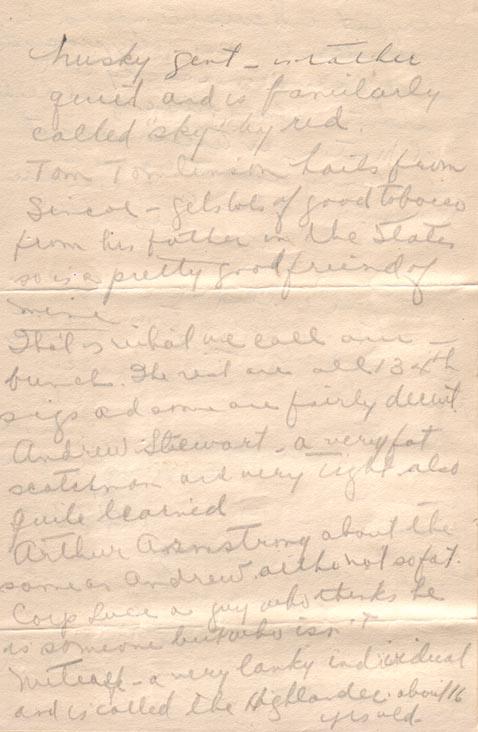 husky gent - is rather
quiet and is familarly
called "sky" by red.
Tom Tomlinson hails from
Simcoe - gets lots of good tobacco
from his father in the States
so is a pretty good friend of
mine
That is what we call our -
bunch. The rest are all 134th
sigs and some are fairly decent.
Andrew Stewart - a very fat
scotchman and very tight also
quite learned
Arthur Armstrong about the
same as Andrew, altho not so fat.
Corp Luce a guy who thinks he
is someone but who isn't
Metcalf - a very lanky individual
and is called the Highlander. about 16
yrs old -